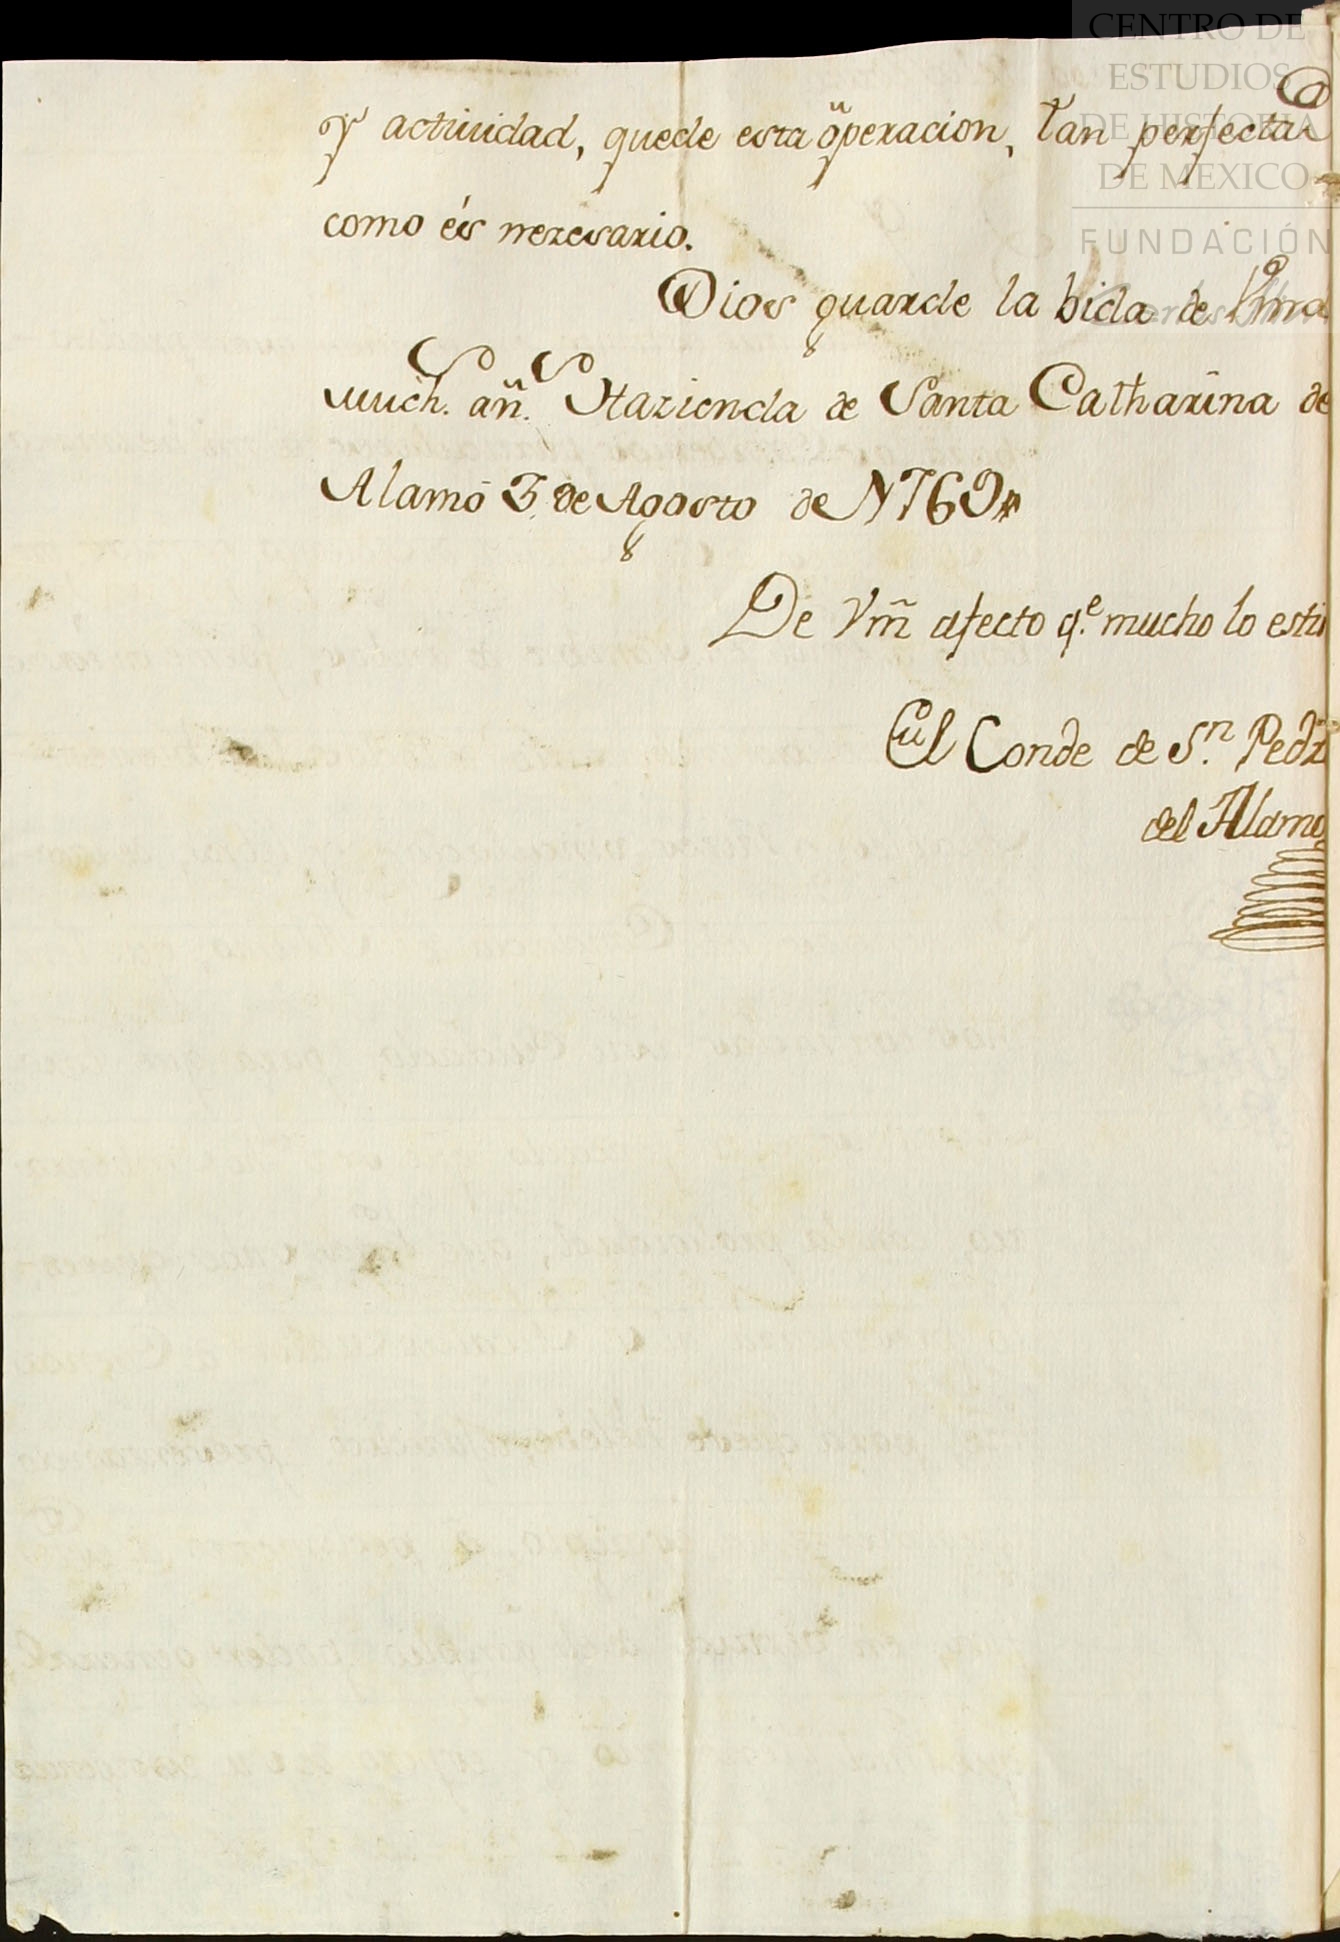 CENTRO DE
ESTUDIOS
DE HISTORIA
DE MEXICO
FUNDACIÓN
y actiuidad, quede esta öperacion, tan perfecta
como és nezesario.
Dios guarde la bida de Vmd
much. añ. Hazienda de Santa Catharina de
Alamo 3 de Agosto de 1769
De Vm̃ afecto q.e mucho lo esti
El Conde de S.n Pedr
del Alamo